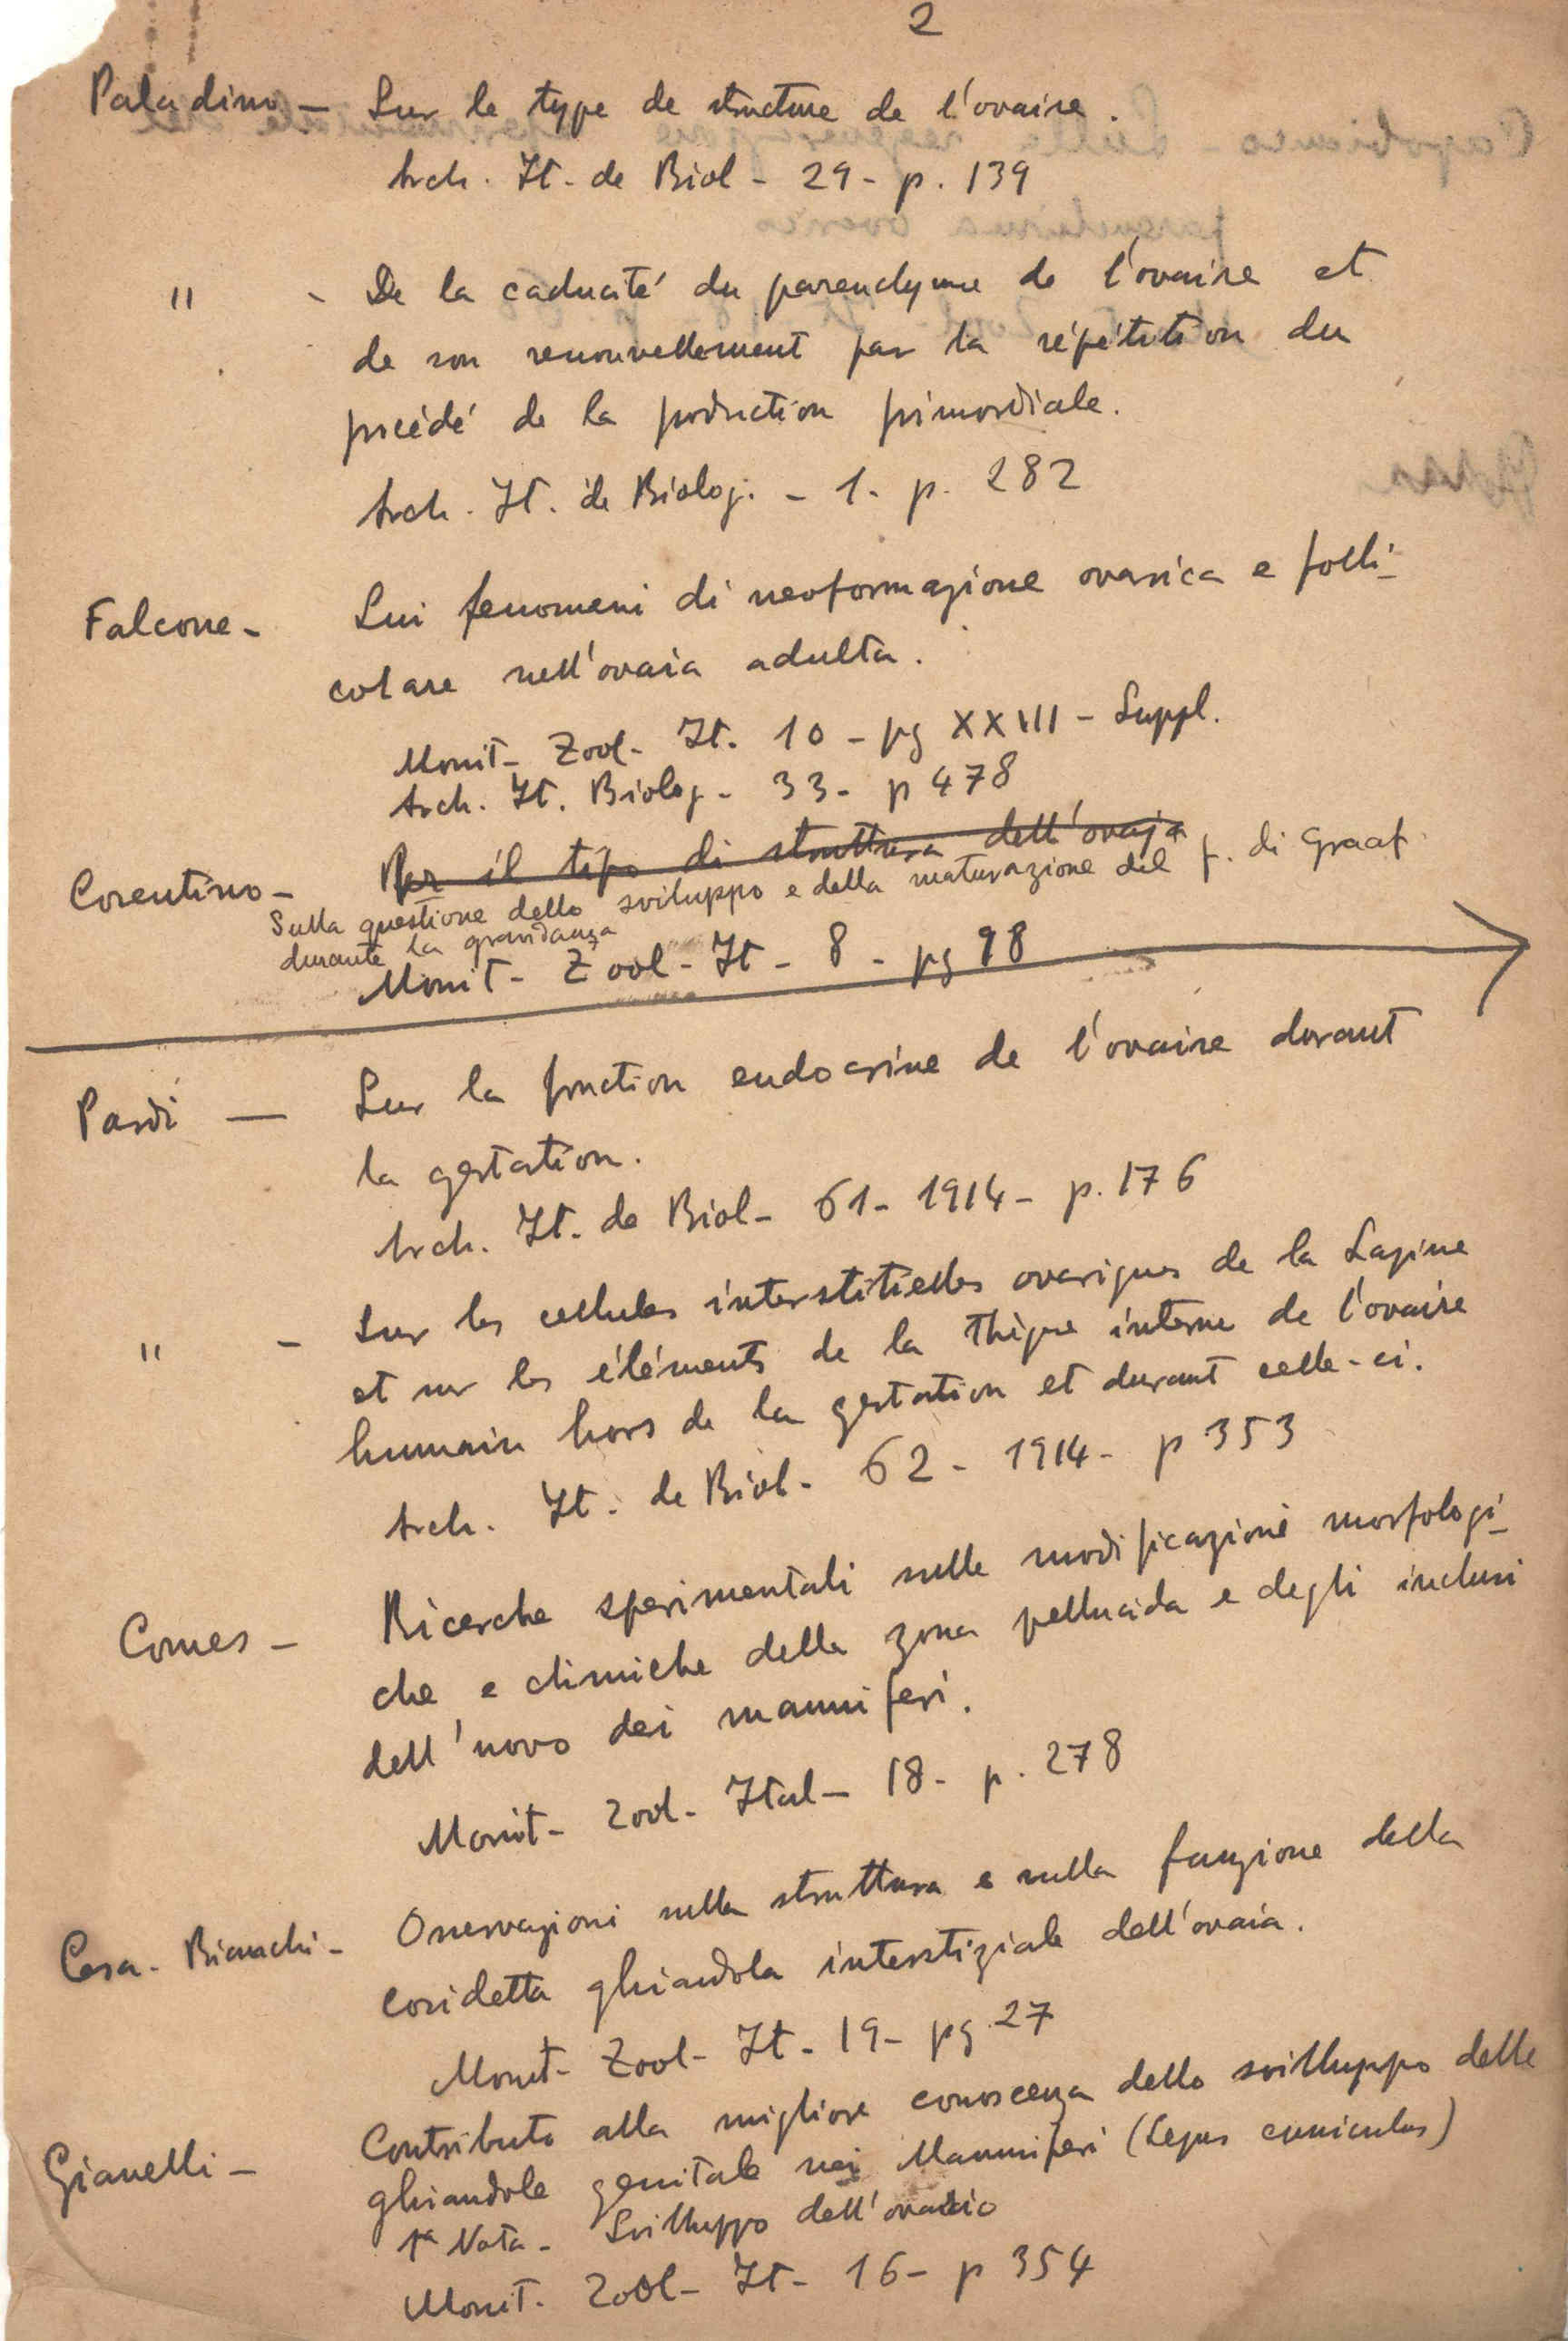 2
Paladino - Sur le type de structure de l'ovaire.
Arch. It. de Biol - 29 - p. 139
" - De la caducité du parenchyme de l'ovaire et
de son renouvellement par la répétition du
procédé de la production primordiale.
Arch. It. de Biolog. - 1. p. 282
Falcone - Sui fenomeni di neoformazione ovarica e folli-
colare nell'ovaia adulta.
Monit - Zool - It. 10 - pg XXIII - Suppl.
Arch. It. Biolog - 33 - p 478
Cosentino - Per il tipo di struttura dell'ovaja
Sulla questione dello sviluppo e della maturazione del f. di Graaf
durante la gravidanza
Monit - Zool - It - 8 - pg 98
Pardi — Sur la fonction endocrine de l'ovaire durant
la gestation.
Arch. It. de Biol - 61 - 1914 - p. 176
" - Sur les cellules interstitielles ovariques de la Lapine
et sur les éléments de la thèque interne de l'ovaire
humain hors de la gestation et durant celle-ci.
Arch. It. de Biol - 62 - 1914 - p 353
Comes - Ricerche sperimentali sulle modificazioni morfologi-
che e chimiche della zona pellucida e degli inclusi
dell'uovo dei mammiferi.
Monit - Zool - Ital - 18 - p. 278
Cesa - Bianchi - Osservazioni sulla struttura e sulla funzione della
cosidetta ghiandola interstiziale dell'ovaia.
Monit - Zool - It - 19 - pg 27
Gianelli - Contributo alla migliore conoscenza dello svilluppo delle
ghiandole genitale nei Mammiferi (Lepus cuniculus)
1ª Nota - Svilluppo dell'ovaio
Monit. Zool - It - 16 - p 354